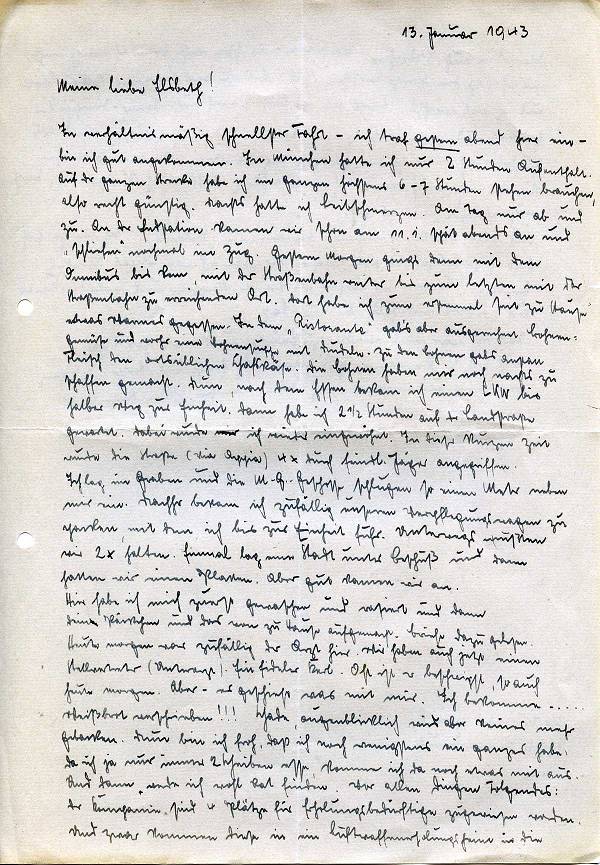 13. Januar 1943
Meine liebe Elsbeth!
In verhältnismäßig schnellster Fahrt – ich traf gestern abend hier ein –
bin ich gut angekommen. In München hatte ich nur 2 Stunden Aufenthalt.
Auf der ganzen Strecke habe ich im ganzen höchstens 6-7 Stunden stehen brauchen,
also recht günstig. Nachts hatte ich Leibschmerzen. Am Tag nur ab und
zu. An der Endstation kamen wir schon am 11.1. spät abends an und
"schliefen" nochmal im Zug. Gestern Morgen gings dann mit dem
Omnibus bis mit der Straßenbahn weiter bis zum letzten mit der
Straßenbahn zu erreichenden Ort. Dort habe ich zum erstenmal seit zu Hause
etwas Warmes gegessen. In dem "Ristorante" gabs aber ausgerechnet Bohnen-
gemüse und vorher eine Bohnensuppe mit Nudeln. Zu den Bohnen gabs anstatt
Fleisch den ortsüblichen Schafskäse. Die Bohnen haben mir noch nachts zu
schaffen gemacht. Nun, nach dem Essen bekam ich einen LKW bis
halber Weg zur Einheit. Dann habe ich 2 1/2 Stunden auf der Landstraße
gewartet. Dabei wurde ich wieder In dieser kurzen Zeit
wurde die Straße (Via Appia) 4x durch feindl. Jäger angegriffen.
Ich lag im Graben und die M.G. Geschosse schlugen so einen Meter neben
mir ein. Nachher bekam ich zufällig unseren Verpflegungswagen zu
packen, mit dem ich bis zur Einheit fuhr. Unterwegs mußten
wir 2x halten. Einmal lag eine Stadt unter Beschuß und dann
hatten wir einen Platten. Aber gut kamen wir an.
Hier habe ich mich zuerst gewaschen und rasiert und dann
dein Päckchen und das von zu Hause aufgemacht. Briefe dazu gelesen.
Heute morgen war zufällig der Arzt hier. Wir haben auch jetzt einen
Stellvertreter (Unterarzt). Ein fideler Kerl. Oft ist er beschwipst, so auch
heute morgen. Aber – es geschieht was mit mir. Ich bekomme .....
Weißbrot verschrieben!!! Schade, augenblicklich wird aber keines mehr
gebacken. Nun bin ich froh, daß ich noch wenigstens ein ganzes habe.
Da ich ja nur immer 2 Scheiben esse, komme ich da noch etwas mit aus.
Und dann werde ich wohl Rat finden. Vor allen Dingen Folgendes:
der Kompanie sind 4 Plätze für Erholungsbedürftige zugewiesen worden.
Und zwar kommen diese in ein Luftwaffenerholungsheim in die